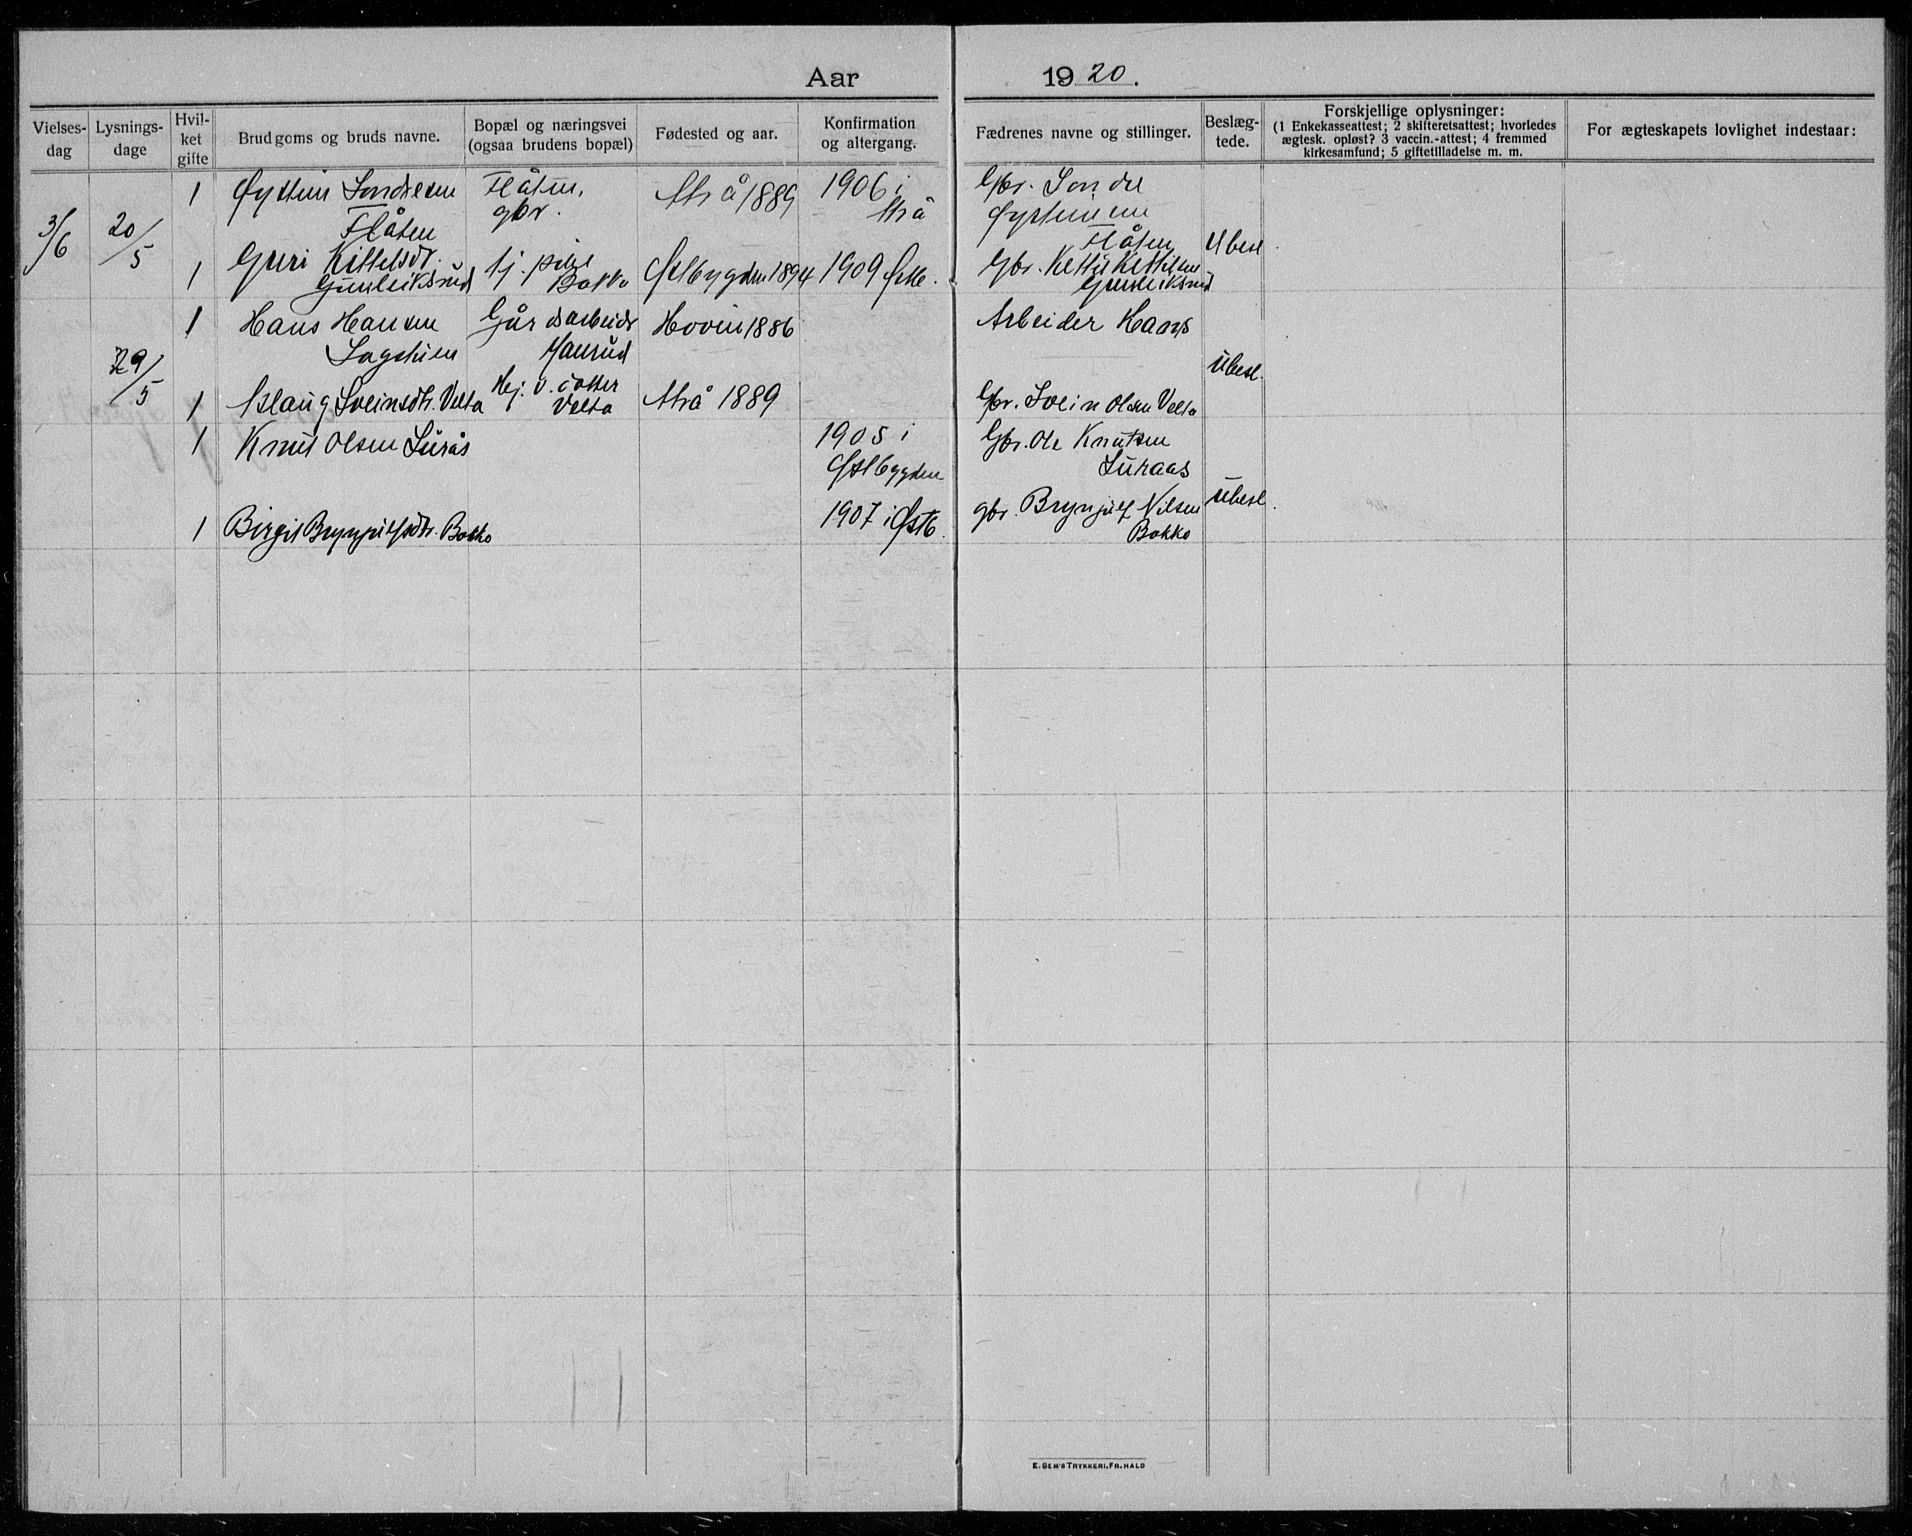 Aar 1920.
Vielses-dag | Lysnings-dage | Hvil-ket gifte | Brudgoms og bruds navne. | Bopæl og næringsvei (ogsaa brudens bopæl) | Fødested og aar. | Konfirmation og altergang. | Fædrenes navne og stillinger. | Beslæg-tede. | Forskjellige oplysninger: (1 Enkekasseattest; 2 skifteretsattest; hvorledes ægtesk. opløst? 3 vaccin.-attest; 4 fremmed kirkesamfund; 5 giftetilladelse m. m. | For ægteskapets lovlighet indestaar:
3/6 | 20/5 | 1 | Øystein Sondresen Flåten | Flåten, gbr. | Atrå 1889 | 1906 i Atrå | Gbr. Sondre Øysteinsen Flåten | Ubesl
1 | Guri Kittelsdr. Gunleiksrud | tj. pike Bakko | Østbygden 1894 | 1909 Østb. | Gbr. Kettil Kettilsen Gunleiksrud
29/5 | 1 | Hans Hansen | Gårdsarbeider | Hovin 1886 | Arbeider Hans | ubesl.
1 | Aslaug Sveinsdtr. Velta | Hj. v. datter Velta | Atrå 1889 | Gbr. Svein Olsen Velta
1 | Knut Olsen Lurås | 1905 i Østbygden | Gbr. Ole Knutsen Luraas | ubesl.
1 | Birgit Brynjulfsdtr. Bakko | 1907 i Østb. | gbr. Brynjulf Nilsen Bakko
E. SEM'S TRYKKERI, FR. HALD